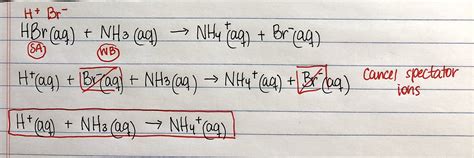 H⁺ Br⁻
HBr(aq) + NH₃(aq) → NH₄⁺(aq) + Br⁻(aq)
SA WB
H⁺(aq) + Br⁻(aq) + NH₃(aq) → NH₄⁺(aq) + Br⁻(aq) Cancel spectator
ions
H⁺(aq) + NH₃(aq) → NH₄⁺(aq)